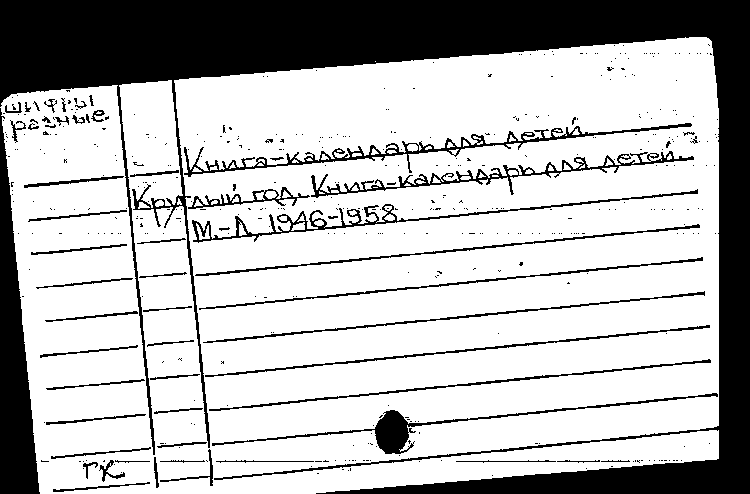 шифры
разные.
Книга-календарь для детей.
Круглый год. Книга-календарь для детей.
М.-Л., 1946-1958.
ГК